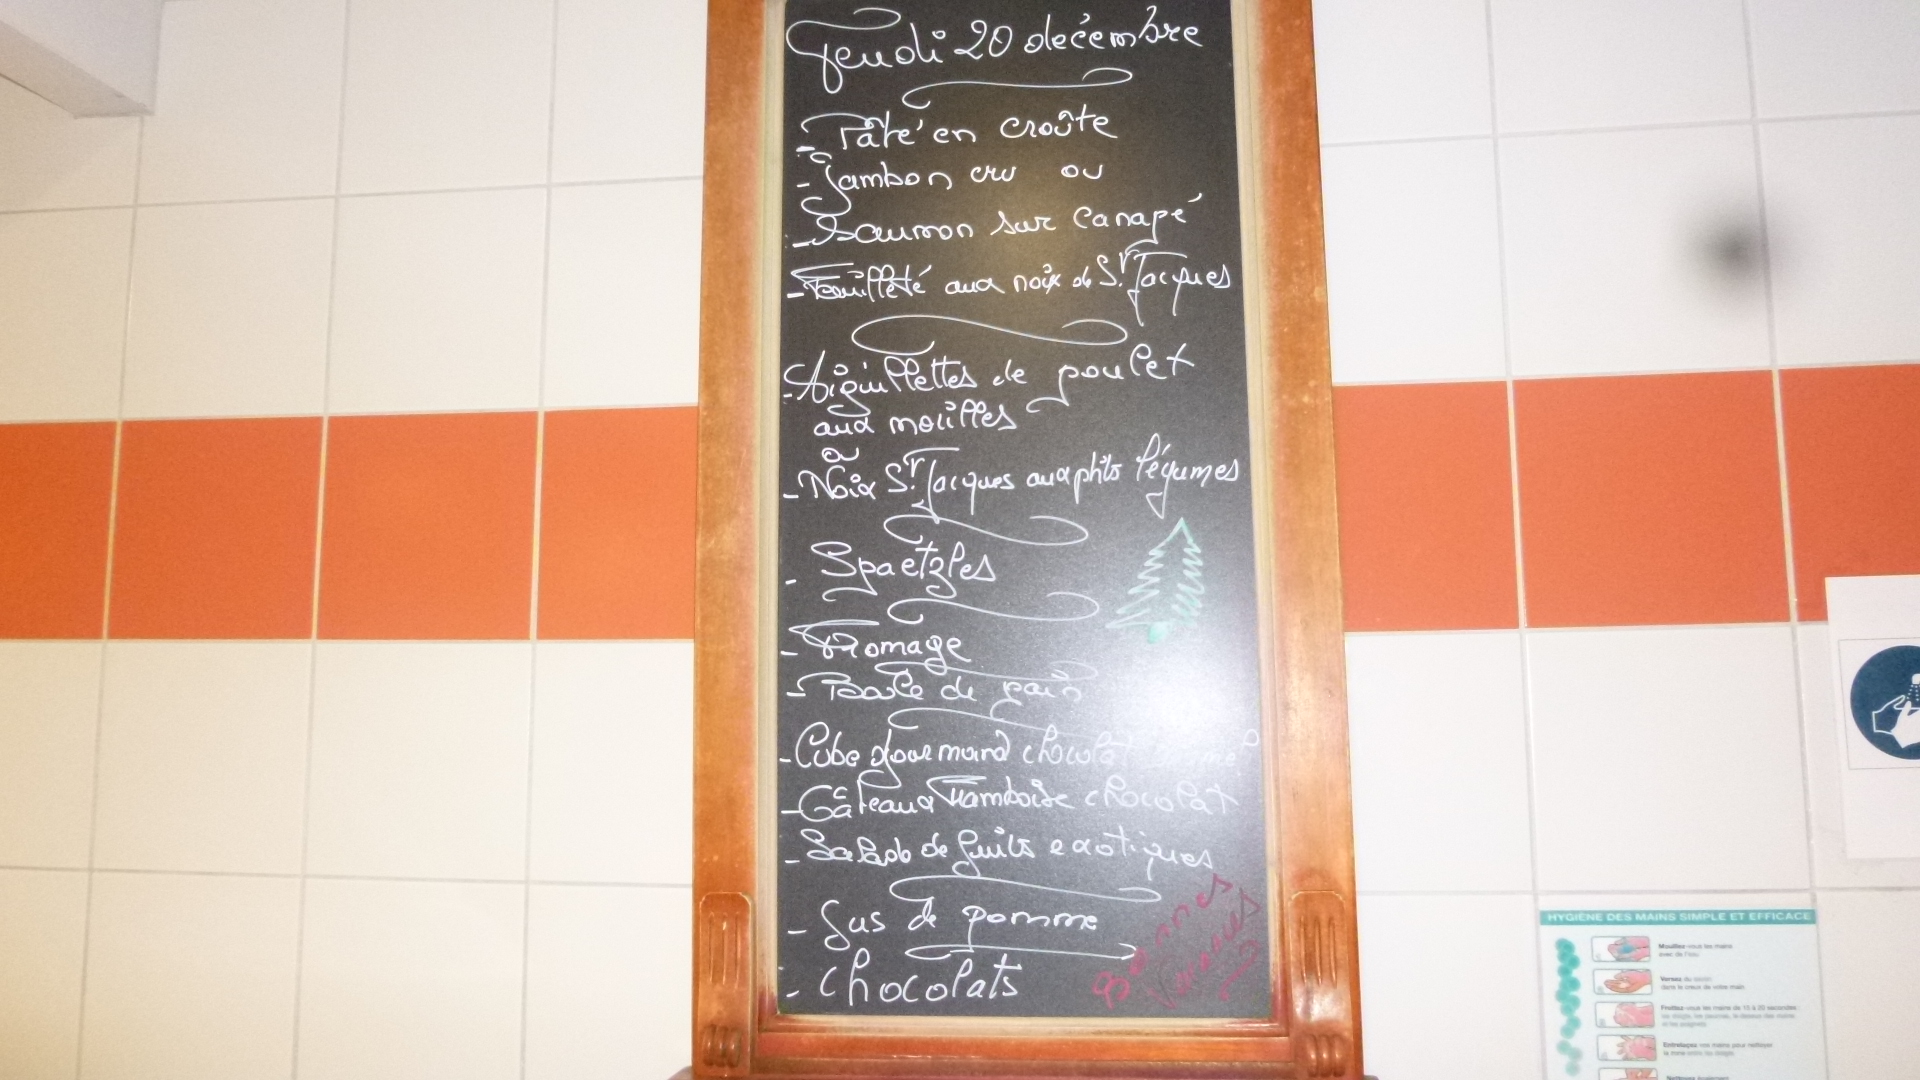 Jeudi 20 décembre
- Pâté en croûte
- Jambon cru ou
- Saumon sur canapé
- Feuilleté aux noix de St Jacques
- Aiguillettes de poulet
aux morilles
ou
- Noix St Jacques aux ptits légumes
- Spaetzles
- Fromage
- Boule de pain
- Cube gourmand chocolat
- Gâteaux Framboise chocolat
- Salade de fruits exotiques
- Jus de pomme
- Chocolats
Bonnes
Vacances
HYGIÈNE DES MAINS SIMPLE ET EFFICACE
Mouillez-vous les mains
avec de l'eau
Versez du savon
dans le creux de votre main
Frottez-vous les mains de 15 à 20 secondes
les doigts, les paumes, le dessus des mains
et les poignets
Entrelaçez vos mains pour nettoyer
la zone entre les doigts
Nettoyez également